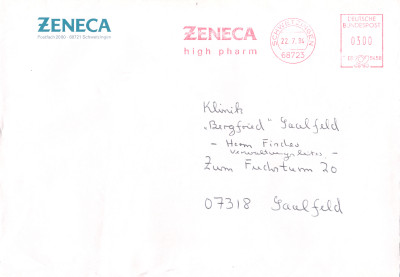 ZENECA
Postfach 2080 · 68721 Schwetzingen
ZENECA
high pharm
SCHWETZINGEN
22.7.94
68723
DEUTSCHE
BUNDESPOST
0300
Klinik
„Bergfried" Saalfeld
- Herrn Fischer
Verwaltungsleiter -
Zum Fuchsturm 20
07318 Saalfeld